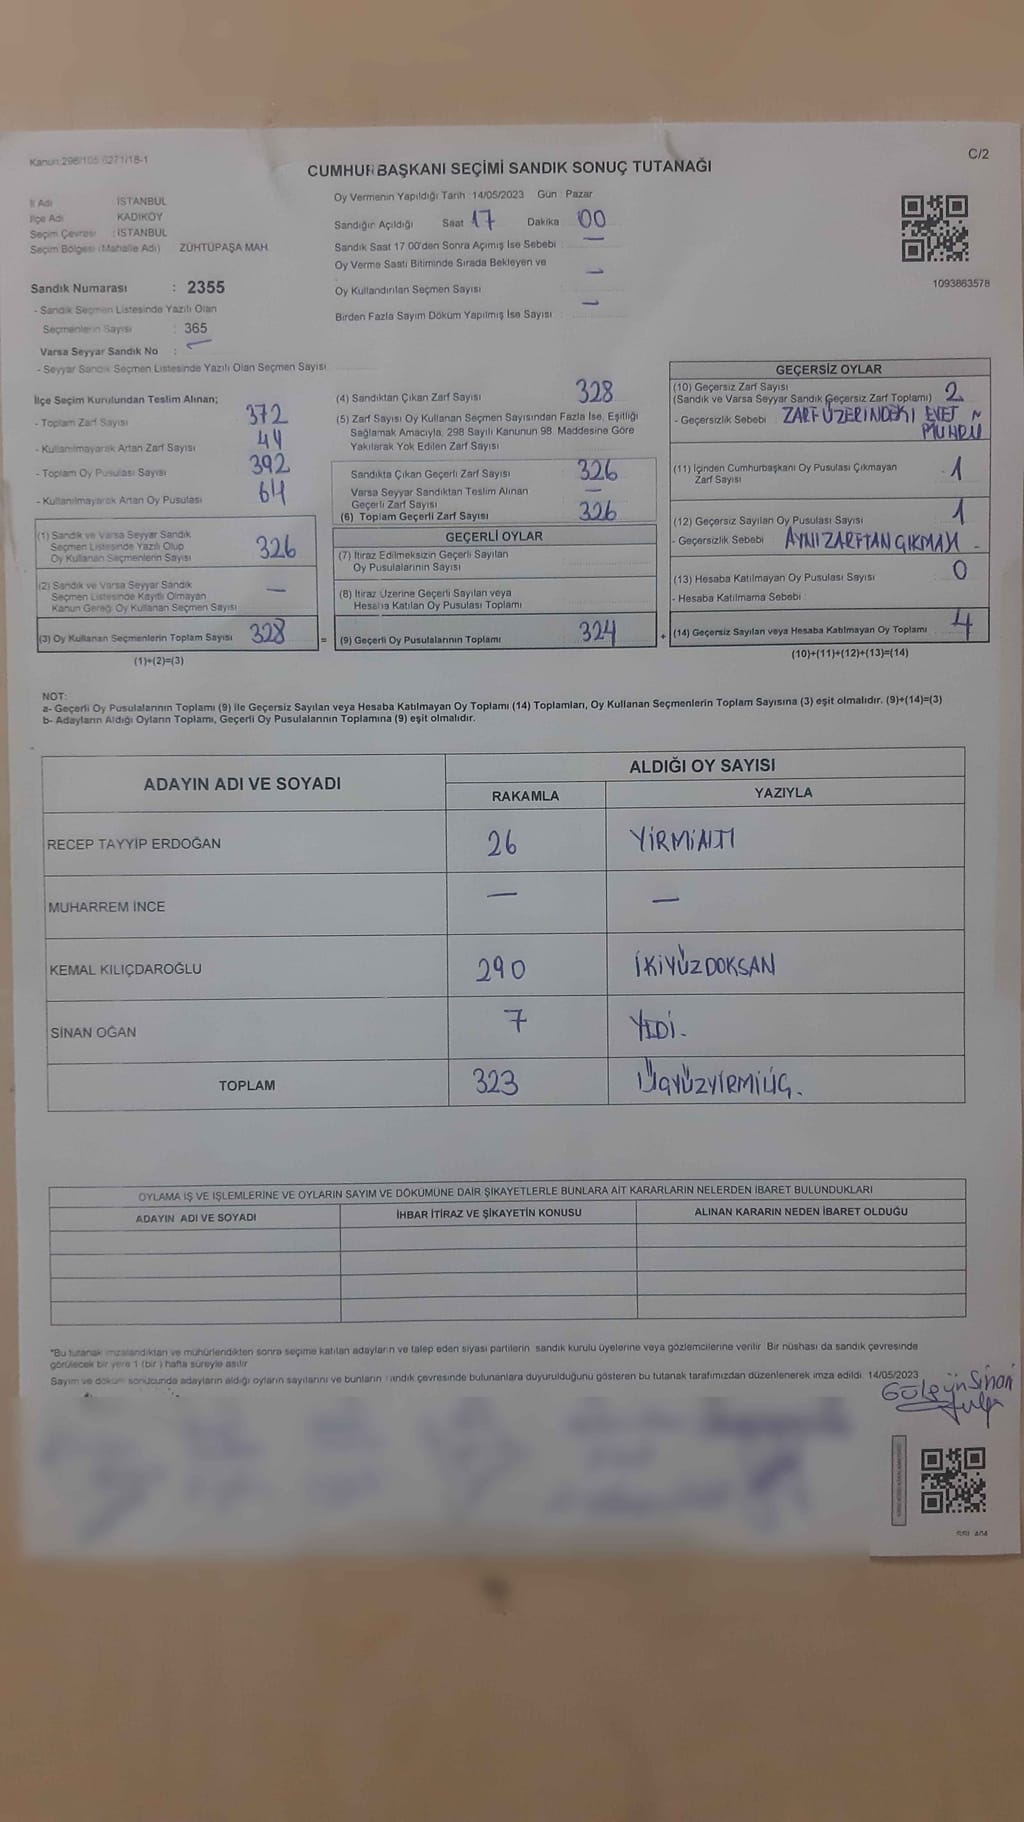 Kanun:298/105 6271/18-1
C/2
CUMHURBAŞKANI SEÇİMİ SANDIK SONUÇ TUTANAĞI
İl Adı İSTANBUL
İlçe Adı KADIKÖY
Seçim Çevresi : İSTANBUL
Seçim Bölgesi (Mahalle Adı) ZÜHTÜPAŞA MAH.
Sandık Numarası : 2355
- Sandık Seçmen Listesinde Yazılı Olan
Seçmenlerin Sayısı : 365
Varsa Seyyar Sandık No : -
- Seyyar Sandık Seçmen Listesinde Yazılı Olan Seçmen Sayısı
Oy Vermenin Yapıldığı Tarih : 14/05/2023 Gün : Pazar
Sandığın Açıldığı Saat 17 Dakika 00
Sandık Saat 17 00'den Sonra Açımış İse Sebebi : —
Oy Verme Saati Bitiminde Sırada Bekleyen ve
Oy Kullandırılan Seçmen Sayısı —
Birden Fazla Sayım Döküm Yapılmış İse Sayısı —
1093863578
İlçe Seçim Kurulundan Teslim Alınan;
- Toplam Zarf Sayısı 372
- Kullanılmayarak Artan Zarf Sayısı 44
- Toplam Oy Pusulası Sayısı 392
- Kullanılmayarak Artan Oy Pusulası 64
(1) Sandık ve Varsa Seyyar Sandık
Seçmen Listesinde Yazılı Olup
Oy Kullanan Seçmenlerin Sayısı 326
(2) Sandık ve Varsa Seyyar Sandık
Seçmen Listesinde Kayıtlı Olmayan
Kanun Gereği Oy Kullanan Seçmen Sayısı —
(3) Oy Kullanan Seçmenlerin Toplam Sayısı 328 =
(1)+(2)=(3)
(4) Sandıktan Çıkan Zarf Sayısı 328
(5) Zarf Sayısı Oy Kullanan Seçmen Sayısından Fazla İse, Eşitliği
Sağlamak Amacıyla, 298 Sayılı Kanunun 98. Maddesine Göre
Yakılarak Yok Edilen Zarf Sayısı
Sandıkta Çıkan Geçerli Zarf Sayısı 326
Varsa Seyyar Sandıktan Teslim Alınan
Geçerli Zarf Sayısı —
(6) Toplam Geçerli Zarf Sayısı 326
GEÇERLİ OYLAR
(7) İtiraz Edilmeksizin Geçerli Sayılan
Oy Pusulalarının Sayısı
(8) İtiraz Üzerine Geçerli Sayılan veya
Hesaba Katılan Oy Pusulası Toplamı
(9) Geçerli Oy Pusulalarının Toplamı 324 +
GEÇERSİZ OYLAR
(10) Geçersiz Zarf Sayısı
(Sandık ve Varsa Seyyar Sandık Geçersiz Zarf Toplamı) 2
- Geçersizlik Sebebi ZARF ÜZERİNDEKİ EVET
MÜHRÜ
(11) İçinden Cumhurbaşkanı Oy Pusulası Çıkmayan
Zarf Sayısı 1
(12) Geçersiz Sayılan Oy Pusulası Sayısı 1
- Geçersizlik Sebebi AYNI ZARFTAN ÇIKMASI
(13) Hesaba Katılmayan Oy Pusulası Sayısı 0
- Hesaba Katılmama Sebebi
(14) Geçersiz Sayılan veya Hesaba Katılmayan Oy Toplamı 4
(10)+(11)+(12)+(13)=(14)
NOT:
a- Geçerli Oy Pusulalarının Toplamı (9) ile Geçersiz Sayılan veya Hesaba Katılmayan Oy Toplamı (14) Toplamları, Oy Kullanan Seçmenlerin Toplam Sayısına (3) eşit olmalıdır. (9)+(14)=(3)
b- Adayların Aldığı Oyların Toplamı, Geçerli Oy Pusulalarının Toplamına (9) eşit olmalıdır.
ADAYIN ADI VE SOYADI ALDIĞI OY SAYISI
RAKAMLA YAZIYLA
RECEP TAYYİP ERDOĞAN 26 YİRMİALTI
MUHARREM İNCE — —
KEMAL KILIÇDAROĞLU 290 İKİYÜZDOKSAN
SİNAN OĞAN 7 YEDİ.
TOPLAM 323 ÜÇYÜZYİRMİÜÇ.
OYLAMA İŞ VE İŞLEMLERİNE VE OYLARIN SAYIM VE DÖKÜMÜNE DAİR ŞİKAYETLERLE BUNLARA AİT KARARLARIN NELERDEN İBARET BULUNDUKLARI
ADAYIN ADI VE SOYADI İHBAR İTİRAZ VE ŞİKAYETİN KONUSU ALINAN KARARIN NEDEN İBARET OLDUĞU
*Bu tutanak imzalandıktan ve mühürlendikten sonra seçime katılan adayların ve talep eden siyasi partilerin sandık kurulu üyelerine veya gözlemcilerine verilir. Bir nüshası da sandık çevresinde
görülecek bir yere 1 (bir) hafta süreyle asılır
Sayım ve döküm sonucunda adayların aldığı oyların sayılarını ve bunların sandık çevresinde bulunanlara duyurulduğunu gösteren bu tutanak tarafımızdan düzenlenerek imza edildi. 14/05/2023